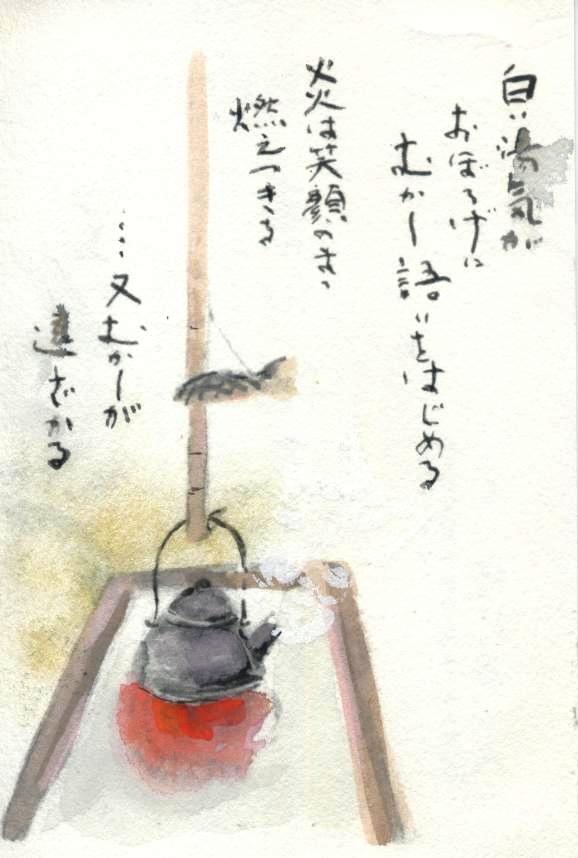 白い湯気が
おぼろげに
むかし語いをはじめる
炎は笑顔のまゝ
燃えつきる
…又むかしが
遠ざかる